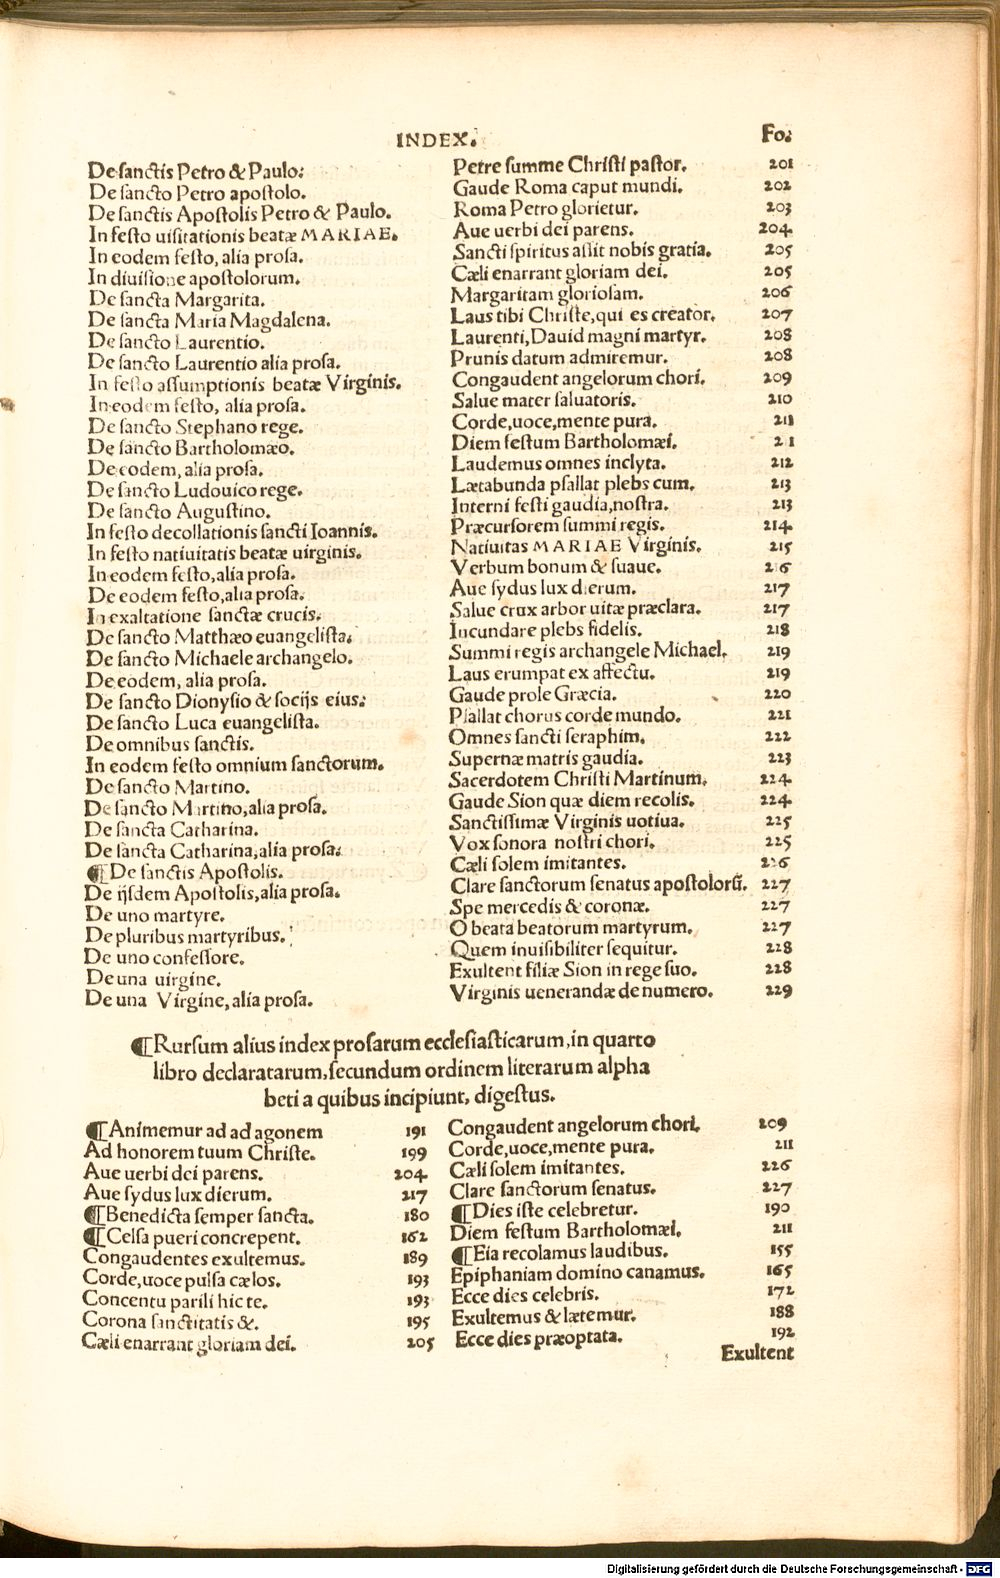 INDEX. Fo:
De sanctis Petro & Paulo: Petre summe Christi pastor. 201
De sancto Petro apostolo. Gaude Roma caput mundi. 202
De sanctis Apostolis Petro & Paulo. Roma Petro glorietur. 203
In festo uisitationis beatæ MARIAE. Aue uerbi dei parens. 204
In eodem festo, alia prosa. Sancti spiritus assit nobis gratia. 205
In diuisione apostolorum. Cæli enarrant gloriam dei. 205
De sancta Margarita. Margaritam gloriosam. 206
De sancta Maria Magdalena. Laus tibi Christe, qui es creator. 207
De sancto Laurentio. Laurenti, Dauid magni martyr. 208
De sancto Laurentio alia prosa. Prunis datum admiremur. 208
In festo assumptionis beatæ Virginis. Congaudent angelorum chori. 209
In eodem festo, alia prosa. Salue mater saluatoris. 210
De sancto Stephano rege. Corde, uoce, mente pura. 211
De sancto Bartholomæo. Diem festum Bartholomæi. 2 1
De eodem, alia prosa. Laudemus omnes inclyta. 212
De sancto Ludouico rege. Lætabunda psallat plebs cum. 213
De sancto Augustino. Interni festi gaudia, nostra. 213
In festo decollationis sancti Joannis. Præcursorem summi regis. 214
In festo natiuitatis beatæ uirginis. Natiuitas MARIAE Virginis. 215
In eodem festo, alia prosa. Verbum bonum & suaue. 216
De eodem festo, alia prosa. Aue sydus lux dierum. 217
In exaltatione sanctæ crucis. Salue crux arbor uitæ præclara. 217
De sancto Matthæo euangelista. Iucundare plebs fidelis. 218
De sancto Michaele archangelo. Summi regis archangele Michael. 219
De eodem, alia prosa. Laus erumpat ex affectu. 219
De sancto Dionysio & socijs eius: Gaude prole Græcia. 220
De sancto Luca euangelista. Psallat chorus corde mundo. 221
De omnibus sanctis. Omnes sancti seraphim. 222
In eodem festo omnium sanctorum. Supernæ matris gaudia. 223
De sancto Martino. Sacerdotem Christi Martinum. 224
De sancto Martino, alia prosa. Gaude Sion quæ diem recolis. 224
De sancta Catharina. Sanctissimæ Virginis uotiua. 225
De sancta Catharina, alia prosa: Vox sonora nostri chori. 225
¶ De sanctis Apostolis. Cæli solem imitantes. 226
De ijsdem Apostolis, alia prosa. Clare sanctorum senatus apostolorũ. 227
De uno martyre. Spe mercedis & coronæ. 227
De pluribus martyribus. O beata beatorum martyrum. 227
De uno confessore. Quem inuisibiliter sequitur. 228
De una uirgine. Exultent filiæ Sion in rege suo. 228
De una Virgine, alia prosa. Virginis uenerandæ de numero. 229
¶ Rursum alius index prosarum ecclesiasticarum, in quarto
libro declaratarum, secundum ordinem literarum alpha
beti a quibus incipiunt, digestus.
¶ Animemur ad ad agonem 191
Ad honorem tuum Christe. 199
Aue uerbi dei parens. 204
Aue sydus lux dierum. 217
¶ Benedicta semper sancta. 180
¶ Celsa pueri concrepent. 162
Congaudentes exultemus. 189
Corde, uoce pulsa cælos. 193
Concentu parili hic te. 193
Corona sanctitatis &. 195
Cæli enarrant gloriam dei. 205
Congaudent angelorum chori. 209
Corde, uoce, mente pura. 211
Cæli solem imitantes. 226
Clare sanctorum senatus. 227
¶ Dies iste celebretur. 190
Diem festum Bartholomæi. 211
¶ Eia recolamus laudibus. 155
Epiphaniam domino canamus. 165
Ecce dies celebris. 172
Exultemus & lætemur. 188
Ecce dies præoptata. 192
Exultent
Digitalisierung gefördert durch die Deutsche Forschungsgemeinschaft - DFG